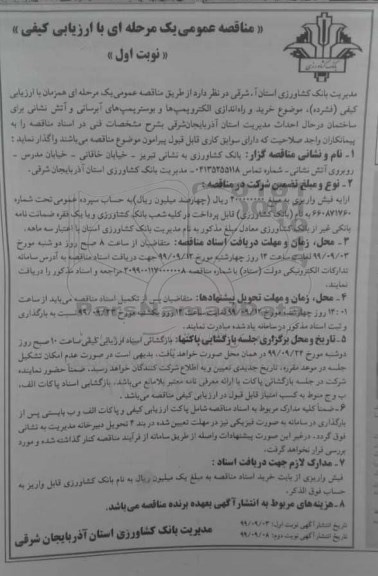 « مناقصه عمومی یک مرحله ای با ارزیابی کیفی »
« نوبت اول »
مدیریت بانک کشاورزی استان آ.شرقی در نظر دارد از طریق مناقصه عمومی یک مرحله ای همزمان با ارزیابی
کیفی (فشرده)، موضوع خرید و راه‌اندازی الکتروپمپ‌ها و بوسترپمپ‌های آبرسانی و آتش نشانی برای
ساختمان درحال احداث مدیریت استان آذربایجان‌شرقی بشرح مشخصات فنی در اسناد مناقصه را به
پیمانکاران واجد صلاحیت که دارای سوابق کاری قابل قبول پیرامون موضوع مناقصه می‌باشند واگذار نماید :
۱ - نام و نشانی مناقصه گزار: بانک کشاورزی به نشانی تبریز - خیابان خاقانی - خیابان مدرس -
روبروی آتش نشانی - شماره تماس ۰۴۱۳۵۲۵۵۱۱۸ - مدیریت بانک کشاورزی استان آذربایجان شرقی.
۲ - نوع و مبلغ تضمین شرکت در مناقصه:
ارایه فیش واریزی به مبلغ ۴۰۰/۰۰۰/۰۰۰ ریال (چهارصد میلیون ریال) به حساب سپرده عمومی تحت شماره
۶۶۰۸۷۱۷۶۰ به نام (بانک کشاورزی) قابل پرداخت در کلیه شعب بانک کشاورزی و یا یک فقره ضمانت نامه
بانکی غیر از بانک کشاورزی معادل مبلغ مذکور به نام مدیریت بانک کشاورزی استان با اعتبار سه ماهه.
۳ - محل، زمان و مهلت دریافت اسناد مناقصه: متقاضیان از ساعت ۸ صبح روز دو شنبه مورخ
۹۹/۰۹/۰۳ لغایت ساعت ۱۴ روز چهارشنبه مورخ ۹۹/۰۹/۱۲ جهت دریافت اسناد مناقصه به آدرس سامانه
تدارکات الکترونیکی دولت (ستاد) با شماره مناقصه مراجعه و اسناد مذکور را دریافت
نمایند.
۴ - محل، زمان و مهلت تحویل پیشنهادها: متقاضیان پس از تکمیل اسناد مناقصه می‌باید از ساعت
روز چهارشنبه مورخ ۹۹/۰۹/۱۲ لغایت ساعت ۱۴ روز یکشنبه مورخ ۹۹/۰۹/۲۳ نسبت به بارگذاری
و ثبت اسناد مذکور در سامانه یاد شده مبادرت نمایند.
۵ - تاریخ و محل برگزاری جلسه بازگشایی پاکتها: بازگشائی اسناد ارزیابی کیفی ساعت ۱۰ صبح روز
دوشنبه مورخ ۹۹/۰۹/۲۴ در همان محل صورت خواهد یافت، بدیهی است در صورت عدم امکان تشکیل
جلسه در موعد مقرره، تاریخ جدیدی تعیین و به اطلاع شرکت کنندگان خواهد رسید. ضمناً حضور نماینده
شرکت در جلسه بازگشائی پاکات با ارائه معرفی نامه معتبر بلامانع می‌باشد. بازگشایی اسناد پاکات الف،
ب و ج منوط به کسب امتیاز قابل قبول در ارزیابی کیفی مناقصه می‌باشد.
۶ - ضمناً کلیه مدارک مربوط به اسناد مناقصه شامل پاکت ارزیابی کیفی و پاکات الف و ب بایستی پس از
بارگذاری در سامانه به صورت فیزیکی نیز در مهلت تعیین شده در بند ۴ تحویل دبیرخانه مدیریت به نشانی
فوق گردد. درغیر این صورت پیشنهادات واصله از طریق سامانه از فرآیند مناقصه کنار گذاشته شده و مورد
بررسی قرار نخواهد گرفت.
۷ - مدارک لازم جهت دریافت اسناد :
فیش واریزی از بابت خرید اسناد مناقصه به مبلغ یک میلیون ریال به نام بانک کشاورزی قابل واریز به
حساب فوق الذکر.
۸ - هزینه‌های مربوط به انتشار آگهی بعهده برنده مناقصه می‌باشد.
تاریخ انتشار آگهی نوبت اول: ۹۹/۰۹/۰۳
تاریخ انتشار آگهی نوبت دوم: ۹۹/۰۹/۰۸
مدیریت بانک کشاورزی استان آذربایجان شرقی